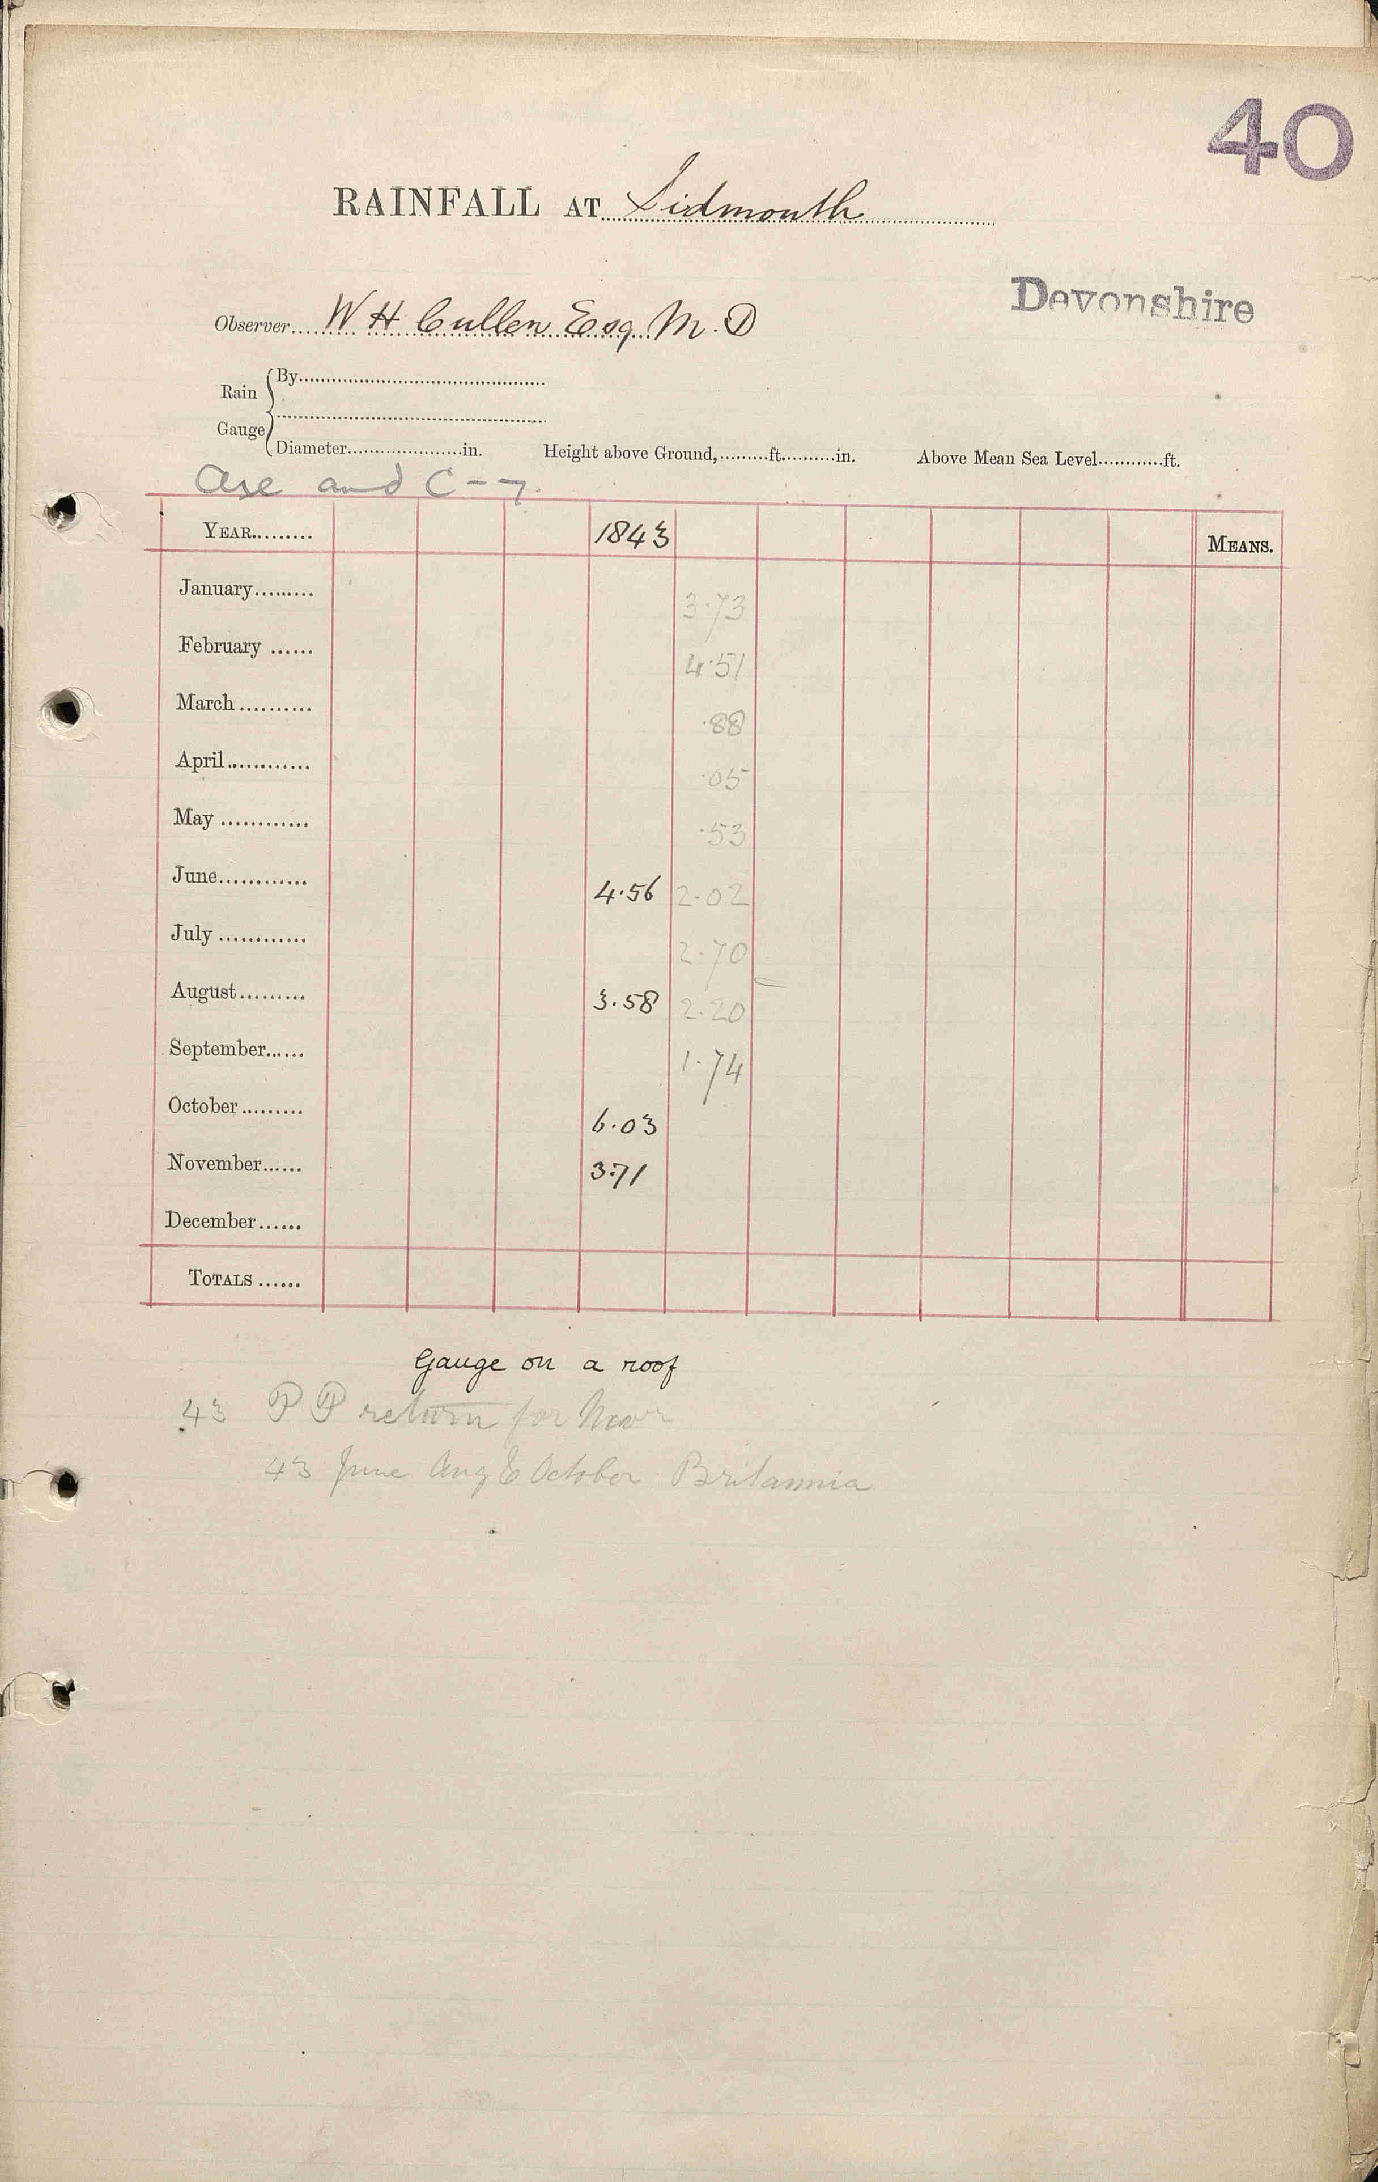 40
RAINFALL AT Sidmouth
Devonshire
Observer W H Cullen Esq M.D
Rain Gauge { By
Diameter in. Height above Ground, ft. in. Above Mean Sea Level ft.
and C
YEAR 1843 MEANS.
January 3.73
February 4.51
March .88
April .05
May .53
June 4.56 2.02
July 2.70
August 3.58 2.20
September 1.74
October 6.03
November 3.71
December
TOTALS
Gauge on a roof
43 P P return for Novr
43 June Aug & October Britannia